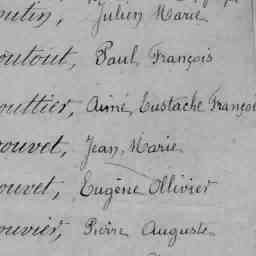 outin, Julien Marie
outout, Paul François
outtier, Aimé, Eustache François
ouvet, Jean, Marie
ouvet, Eugène Ollivier
ouvier, Pierre Auguste